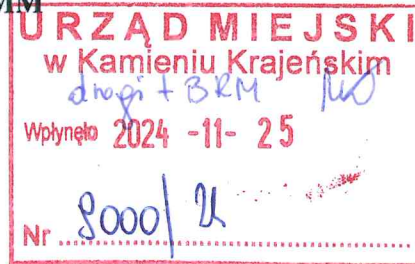 MM
URZĄD MIEJSKI
w Kamieniu Krajeńskim
drogi + BRM
Wpłynęło 2024 -11- 25
Nr 9000/24